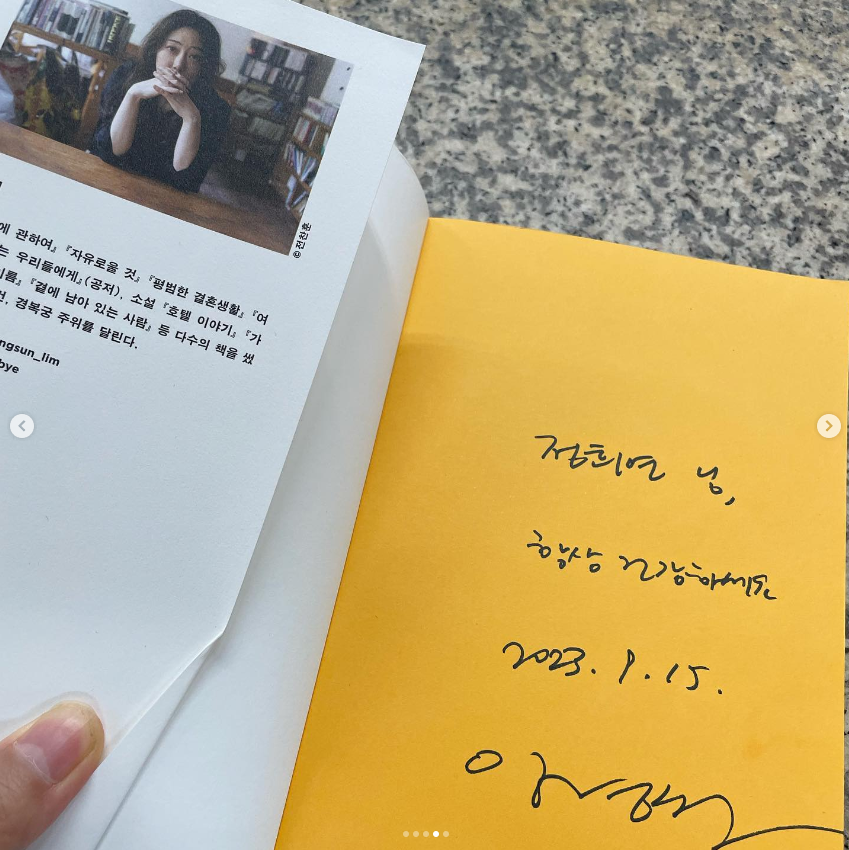 ©진천훈
에 관하여』『자유로울 것』『평범한 결혼생활』『여
는 우리들에게』(공저), 소설 『호텔 이야기』『가
름』『곁에 남아 있는 사람』 등 다수의 책을 썼
경복궁 주위를 달린다.
ngsun_lim
bye
정희연 님,
항상 건강하세요
2023. 9. 15.